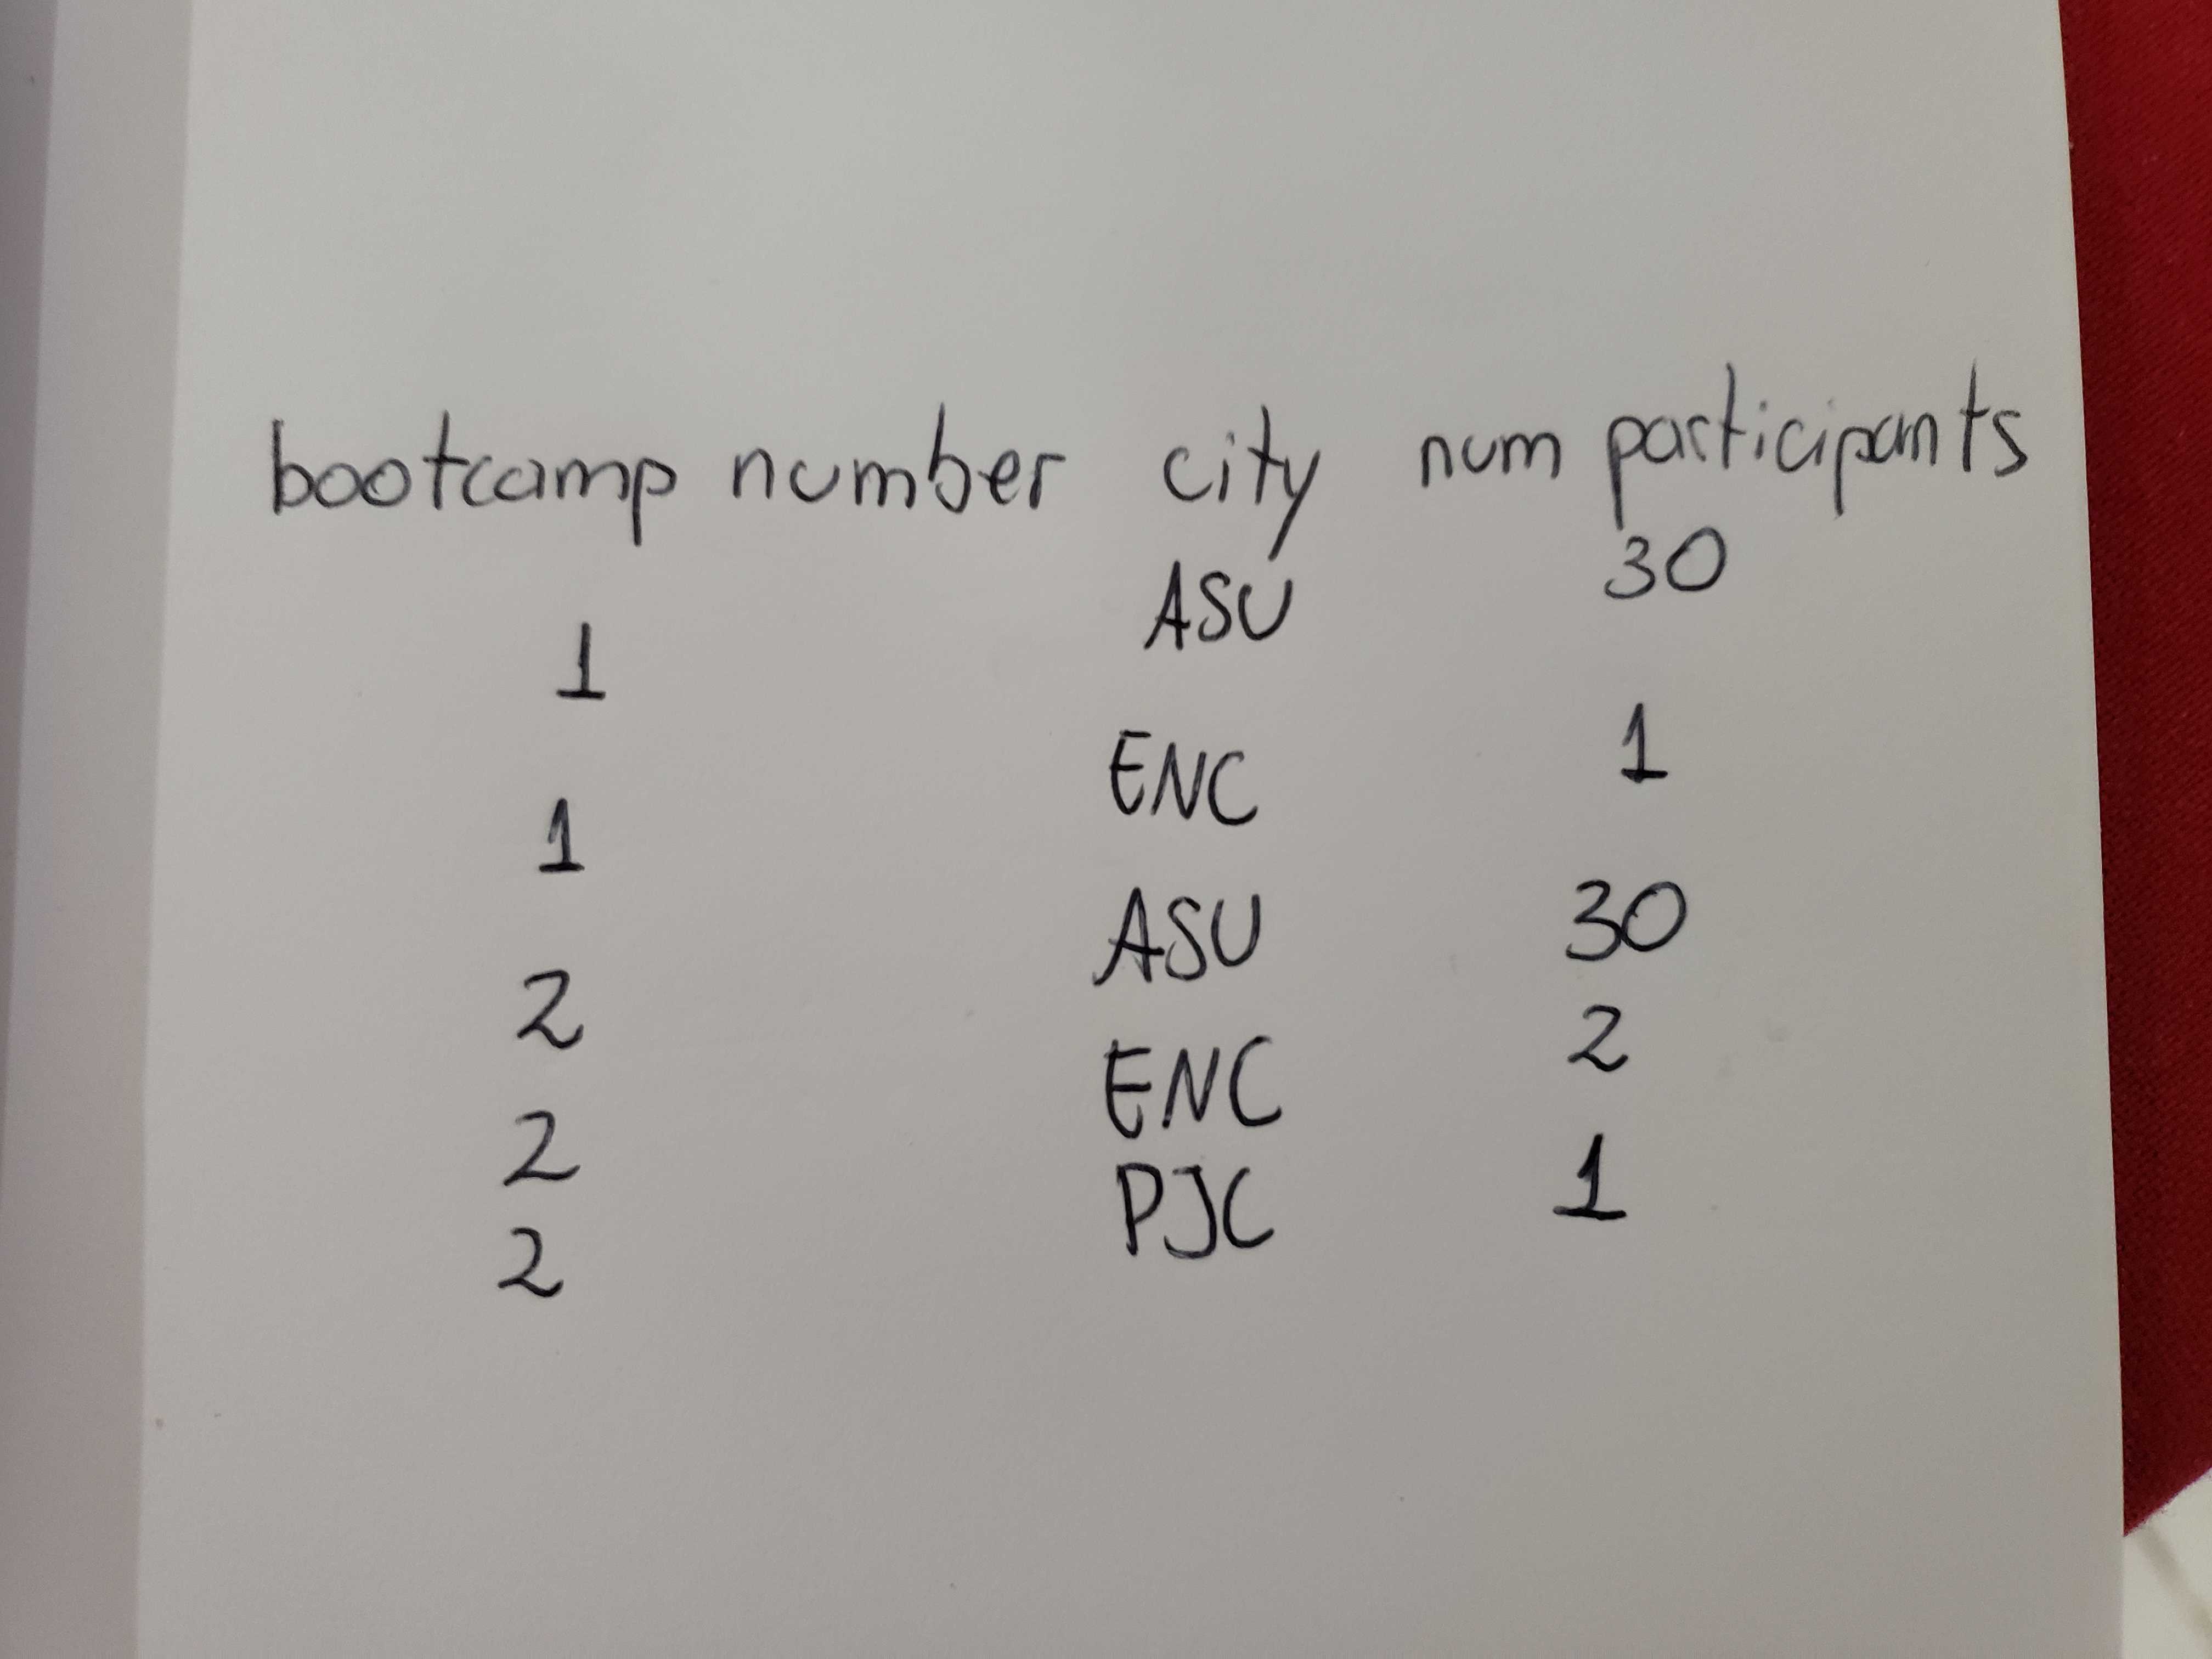 bootcamp number city num participants
1 ASU 30
1 ENC 1
2 ASU 30
2 ENC 2
2 PJC 1